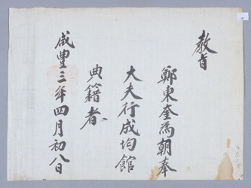 教旨
鄭東奎爲朝奉
大夫行成均館
典籍者
咸豊三年四月初八日